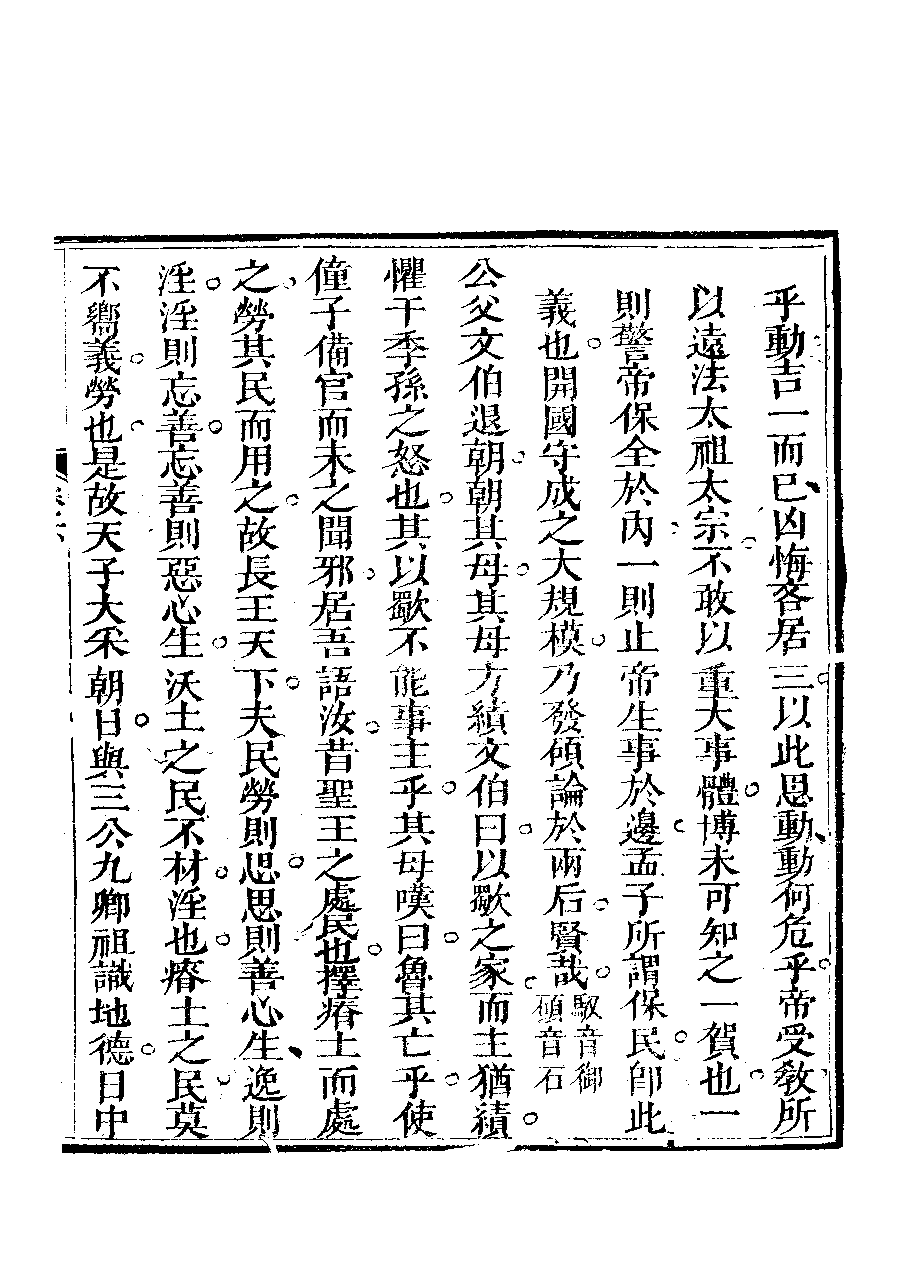 乎動吉一而已凶悔吝居三以此思動動何危乎帝受敎所
以遠法太祖太宗不敢以重大事體博未可知之一賀也一
則警帝保全於內一則止帝生事於邊孟子所謂保民卽此
義也開國守成之大規模乃發碩論於兩后賢哉馭音御碩音石
公父文伯退朝朝其母其母方績文伯曰以歜之家而主猶績
懼干季孫之怒也其以歜不能事主乎其母嘆曰魯其亡乎使
僮子備官而未之聞邪居吾語汝昔聖王之處民也擇瘠土而處
之勞其民而用之故長王天下夫民勞則思思則善心生逸則
淫淫則忘善忘善則惡心生沃土之民不材淫也瘠土之民莫
不嚮義勞也是故天子大采朝日與三公九卿祖識地德日中